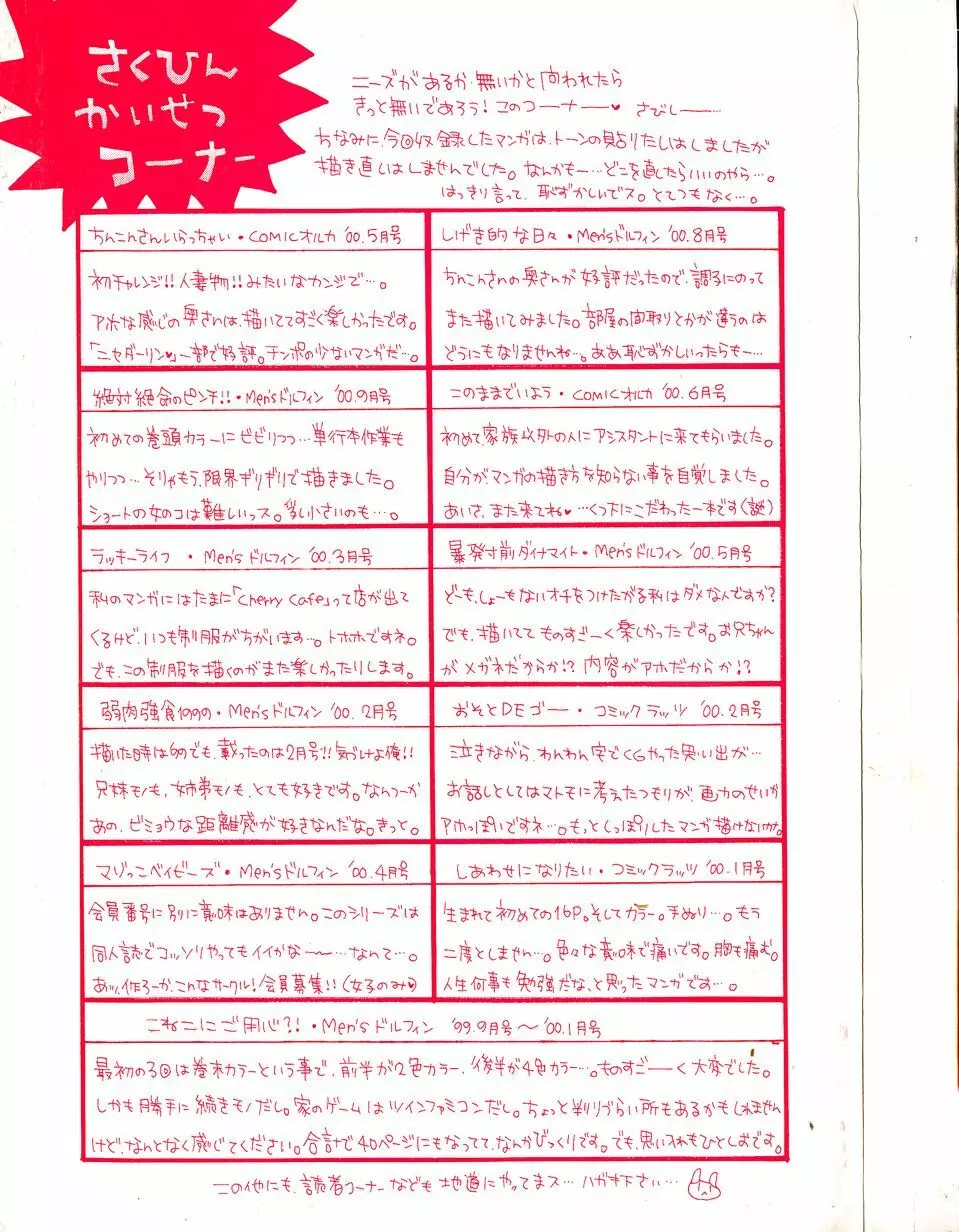 さくひん
かいせつ
コーナー
ニーズがあるか無いかと問われたら
きっと無いであろう!このコーナー♥ さびしー…
ちなみに、今回収録したマンガは、トーンの貼りたしはしましたが
描き直しはしませんでした。なんかもー…どこを直したらいいのやら…。
はっきり言って、恥ずかしいでス。とてつもなく…。
ちんこんさんいらっちゃい・COMICオルカ '00.5月号
初チャレンジ!!人妻物!!みたいなカンジで…。
アホな感じの奥さんは、描いててすごく楽しかったです。
「ニセダーリン♥」一部で好評。チンポの少ないマンガだ…。
しげき的な日々・Men'sドルフィン '00.8月号
ちんこんさんの奥さんが好評だったので、調子にのって
また描いてみました。部屋の間取りとかが違うのは
どうにもなりませんね…。ああ恥ずかしいったらもー…
絶対絶命のピンチ!!・Men'sドルフィン '00.9月号
初めての巻頭カラーにビビりつつ…単行本作業も
やりつつ…そりゃもう、限界ギリギリで描きました。
ショートの女のコは難しいっス。乳小さいのも…。
このままでいよう・COMICオルカ '00.6月号
初めて、家族以外の人にアシスタントに来てもらいました。
自分がマンガの描き方を知らない事を自覚しました。
あいさ、また来てね♥…くつ下にこだわった一本です(謎)
ラッキーライフ ・Men'sドルフィン '00.3月号
私のマンガにはたまに「cherry cafe」って店が出て
くるけど、いつも制服がちがいます…。トホホですネ。
でも、この制服を描くのがまた楽しかったりします。
暴発寸前ダイナマイト・Men'sドルフィン '00.5月号
どーも、しょーもないオチをつけたがる私はダメなんですか?
でも、描いてて ものすごーく楽しかったです。お兄ちゃん
がメガネだからか!?内容がアホだからか!?
弱肉強食1999・Men'sドルフィン '00.2月号
描いた時は99でも、載ったのは2月号!!気づけよ俺!!
兄妹モノも、姉弟モノも、とても好きです。なんつーか
あの、ビミョウな距離感が好きなんだな。きっと。
おそとDEゴー・コミックラッツ '00.2月号
泣きながら、わんわん宅でCGやった思い出が…
お話としてはマトモに考えたつもりが、画力のせいか
アホっぽいですネ…。もっとしっぽりしたマンガ描けないか。
マゾっこベイビーズ・Men'sドルフィン '00.4月号
会員番号に別に意味はありません。このシリーズは
同人誌でコッソリやってもイイかな〜…なんて…。
あッ、作ろーか、こんなサークル!会員募集!!(女子のみ♥)
しあわせになりたい・コミックラッツ '00.1月号
生まれて初めての16P。そしてカラー。手ぬり…。もう
二度としません…。色々な意味で痛いです。胸も痛む。
人生何事も勉強だな、と思ったマンガです…。
こねこにご用心?!・Men'sドルフィン '99.9月号〜'00.1月号
最初の3回は巻末カラーという事で、前半が2色カラー、後半が4色カラー…。ものすごーく大変でした。
しかも勝手に続きモノだし。家のゲームはツインファミコンだし。ちょっと判りづらい所もあるかもしれません
けど、なんとなく感じてください。合計で40ページにもなってて、なんかびっくりです。でも、思い入れもひとしおです。
この他にも、読者コーナーなども地道にやってまス…ハガキ下さい…